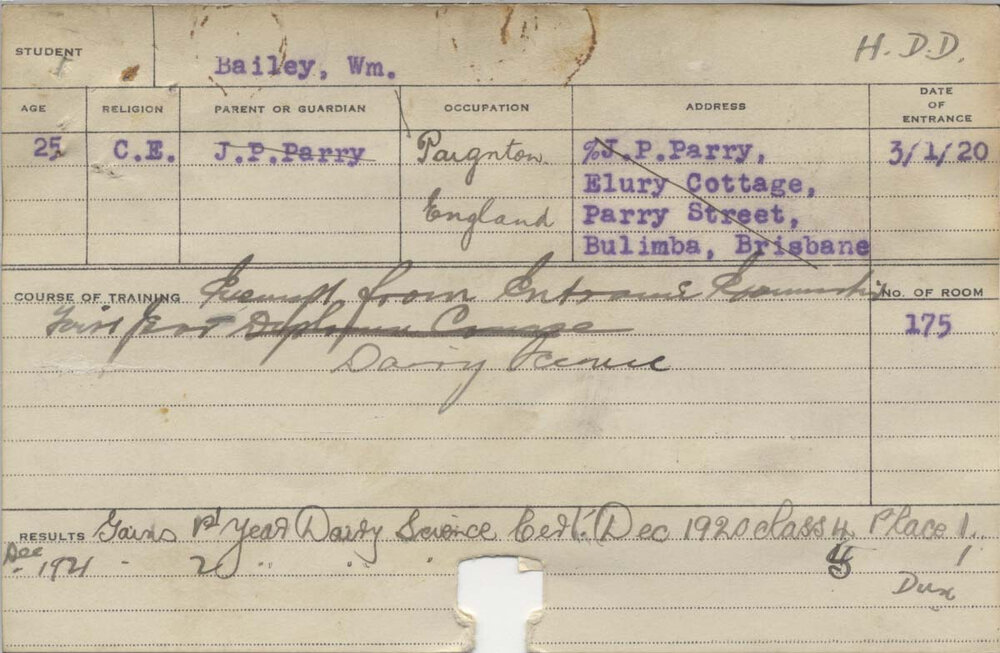 STUDENT
Bailey, Wm.
H.D.D.
AGE RELIGION PARENT OR GUARDIAN OCCUPATION ADDRESS DATE OF ENTRANCE
25 C.E. J.P.Parry Paignton ℅J.P.Parry, 3/1/20
Elury Cottage,
England Parry Street,
Bulimba, Brisbane
COURSE OF TRAINING Exempt from Entrance Examination No. OF ROOM
First Year Diploma Course 175
Dairy Science
RESULTS Gains 1st Year Dairy Science Cert. Dec 1920 class 4 Place 1.
Dec 1921 " 2 " " " 5 1
Dux